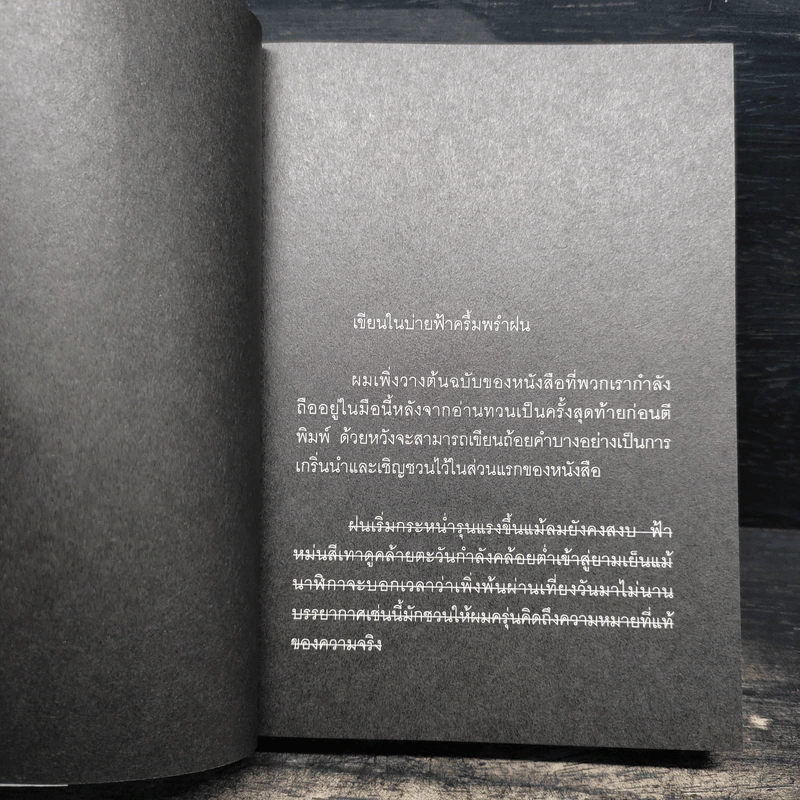 เขียนในบ่ายฟ้าครึ้มพรำฝน
ผมเพิ่งวางต้นฉบับของหนังสือที่พวกเรากำลัง
ถืออยู่ในมือนี้หลังจากอ่านทวนเป็นครั้งสุดท้ายก่อนตี
พิมพ์ ด้วยหวังจะสามารถเขียนถ้อยคำบางอย่างเป็นการ
เกริ่นนำและเชิญชวนไว้ในส่วนแรกของหนังสือ
ฝนเริ่มกระหน่ำรุนแรงขึ้นแม้ลมยังคงสงบ ฟ้า
หม่นสีเทาดูคล้ายตะวันกำลังคล้อยต่ำเข้าสู่ยามเย็นแม้
นาฬิกาจะบอกเวลาว่าเพิ่งพ้นผ่านเที่ยงวันมาไม่นาน
บรรยากาศเช่นนี้มักชวนให้ผมครุ่นคิดถึงความหมายที่แท้
ของความจริง